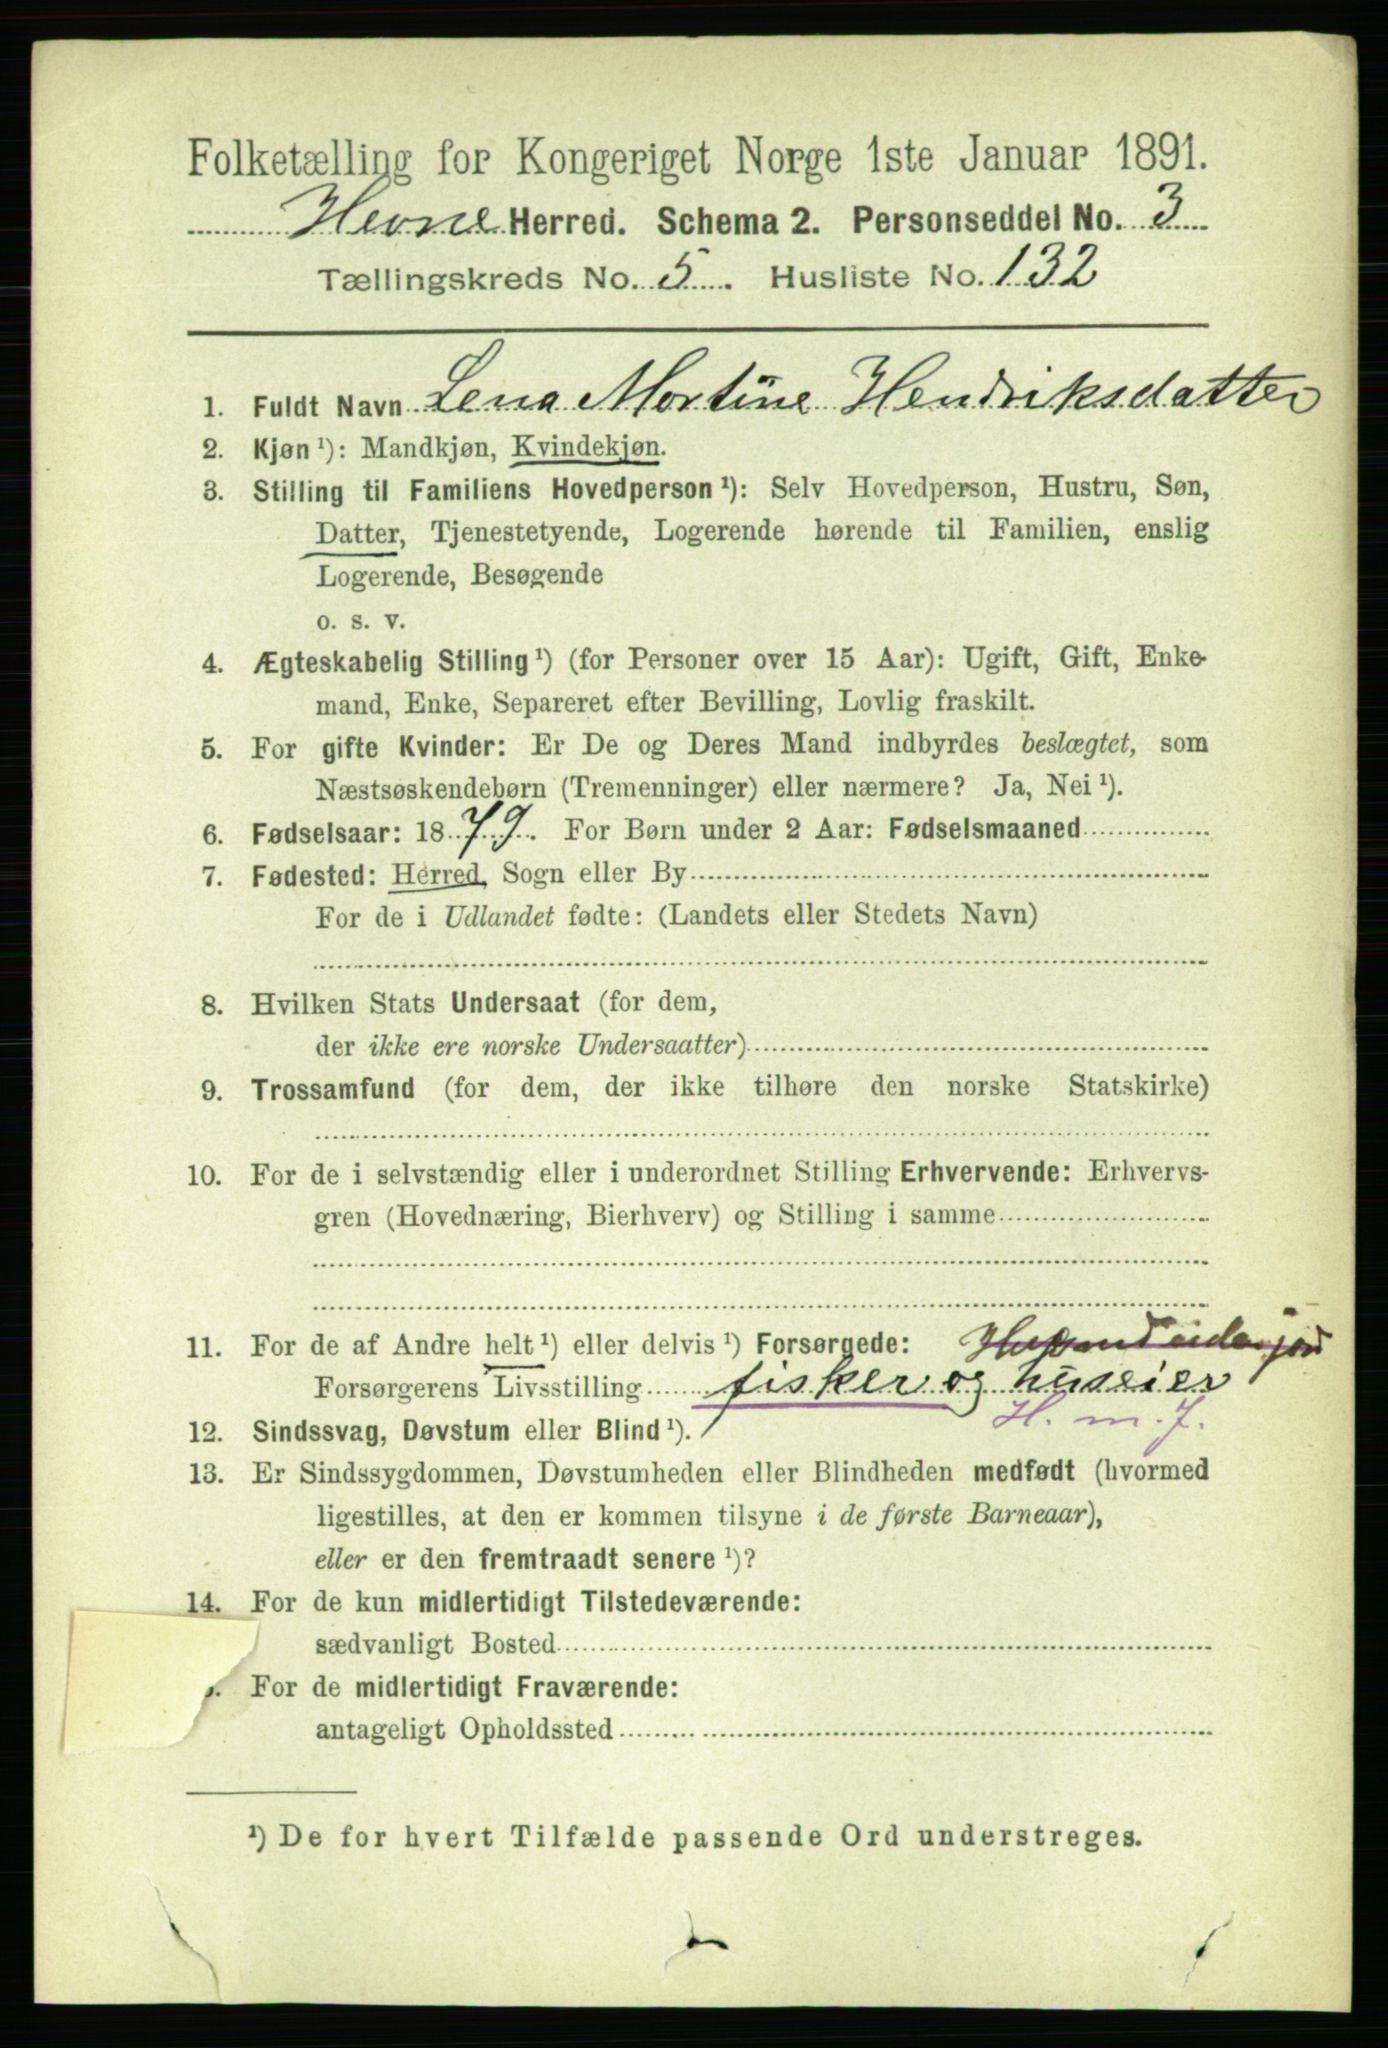 Folketælling for Kongeriget Norge 1ste Januar 1891.
Hevne Herred. Schema 2. Personseddel No. 3
Tællingskreds No. 5. Husliste No. 132
1. Fuldt Navn Lena Mortine Hendriksdatter
2. Kjøn ¹): Mandkjøn, Kvindekjøn.
3. Stilling til Familiens Hovedperson ¹): Selv Hovedperson, Hustru, Søn,
Datter, Tjenestetyende, Logerende hørende til Familien, enslig
Logerende, Besøgende
o. s. v.
4. Ægteskabelig Stilling ¹) (for Personer over 15 Aar): Ugift, Gift, Enke-
mand, Enke, Separeret efter Bevilling, Lovlig fraskilt.
5. For gifte Kvinder: Er De og Deres Mand indbyrdes beslægtet, som
Næstsøskendebørn (Tremenninger) eller nærmere? Ja, Nei ¹).
6. Fødselsaar: 1879. For Børn under 2 Aar: Fødselsmaaned
7. Fødested: Herred, Sogn eller By
For de i Udlandet fødte: (Landets eller Stedets Navn)
8. Hvilken Stats Undersaat (for dem,
der ikke ere norske Undersaatter)
9. Trossamfund (for dem, der ikke tilhøre den norske Statskirke)
10. For de i selvstændig eller i underordnet Stilling Erhvervende: Erhvervs-
gren (Hovednæring, Bierhverv) og Stilling i samme
11. For de af Andre helt ¹) eller delvis ¹) Forsørgede: Husmand uden jord
Forsørgerens Livsstilling fisker og huseier
H. m. J.
12. Sindssvag, Døvstum eller Blind ¹).
13. Er Sindssygdommen, Døvstumheden eller Blindheden medfødt (hvormed
ligestilles, at den er kommen tilsyne i de første Barneaar),
eller er den fremtraadt senere ¹)?
14. For de kun midlertidigt Tilstedeværende:
sædvanligt Bosted
For de midlertidigt Fraværende:
antageligt Opholdssted
¹) De for hvert Tilfælde passende Ord understreges.